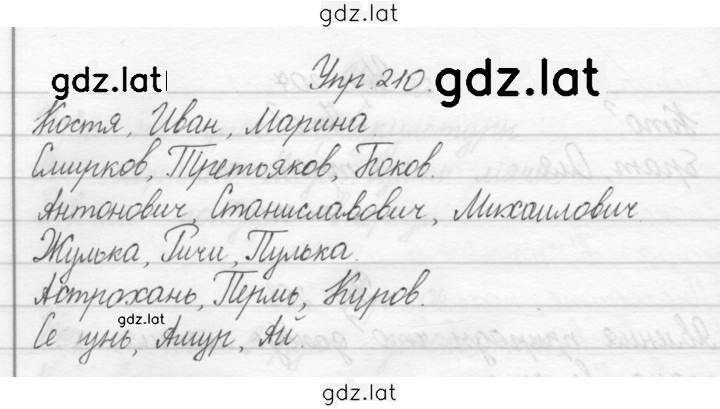 gdz.lat
Упр. 210.
gdz.lat gdz.lat
Костя, Иван, Марина
Смирков, Третьяков, Боков.
Антонович, Станиславович, Михаилович.
Жулька, Ричи, Пулька.
Астрахань, Пермь, Куров.
gdz.lat
Амур, Ай
gdz.lat